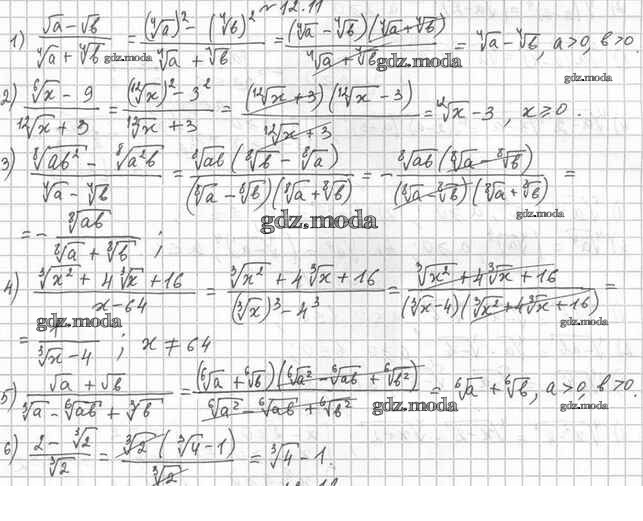 № 12.11
1) (√a − √b)/(⁴√a + ⁴√b) = ((⁴√a)² − (⁴√b)²)/(⁴√a + ⁴√b) = ((⁴√a − ⁴√b)(⁴√a + ⁴√b))/(⁴√a + ⁴√b) = ⁴√a − ⁴√b, a>0, b>0.
gdz.moda gdz.moda gdz.moda
2) (⁶√x − 9)/(¹²√x + 3) = ((¹²√x)² − 3²)/(¹²√x + 3) = ((¹²√x + 3)(¹²√x − 3))/(¹²√x + 3) = ¹²√x − 3, x ⩾ 0.
3) (⁸√ab² − ⁸√a²b)/(⁴√a − ⁴√b) = (⁸√ab (⁸√b − ⁸√a))/((⁸√a − ⁸√b)(⁸√a + ⁸√b)) = − (⁸√ab (⁸√a − ⁸√b))/((⁸√a − ⁸√b)(⁸√a + ⁸√b)) =
gdz.moda gdz.moda
= − ⁸√ab/(⁸√a + ⁸√b) ;
4) (³√x² + 4³√x + 16)/(x − 64) = (³√x² + 4³√x + 16)/((³√x)³ − 4³) = (³√x² + 4³√x + 16)/((³√x − 4)(³√x² + 4³√x + 16)) =
gdz.moda gdz.moda
= 1/(³√x − 4) ; x ≠ 64
5) (√a + √b)/(³√a − ⁶√ab + ³√b) = ((⁶√a + ⁶√b)(⁶√a² − ⁶√ab + ⁶√b²))/(⁶√a² − ⁶√ab + ⁶√b²) = ⁶√a + ⁶√b, a>0, b>0.
gdz.moda gdz.moda
6) (2 − ³√2)/³√2 = (³√2 (³√4 − 1))/³√2 = ³√4 − 1.